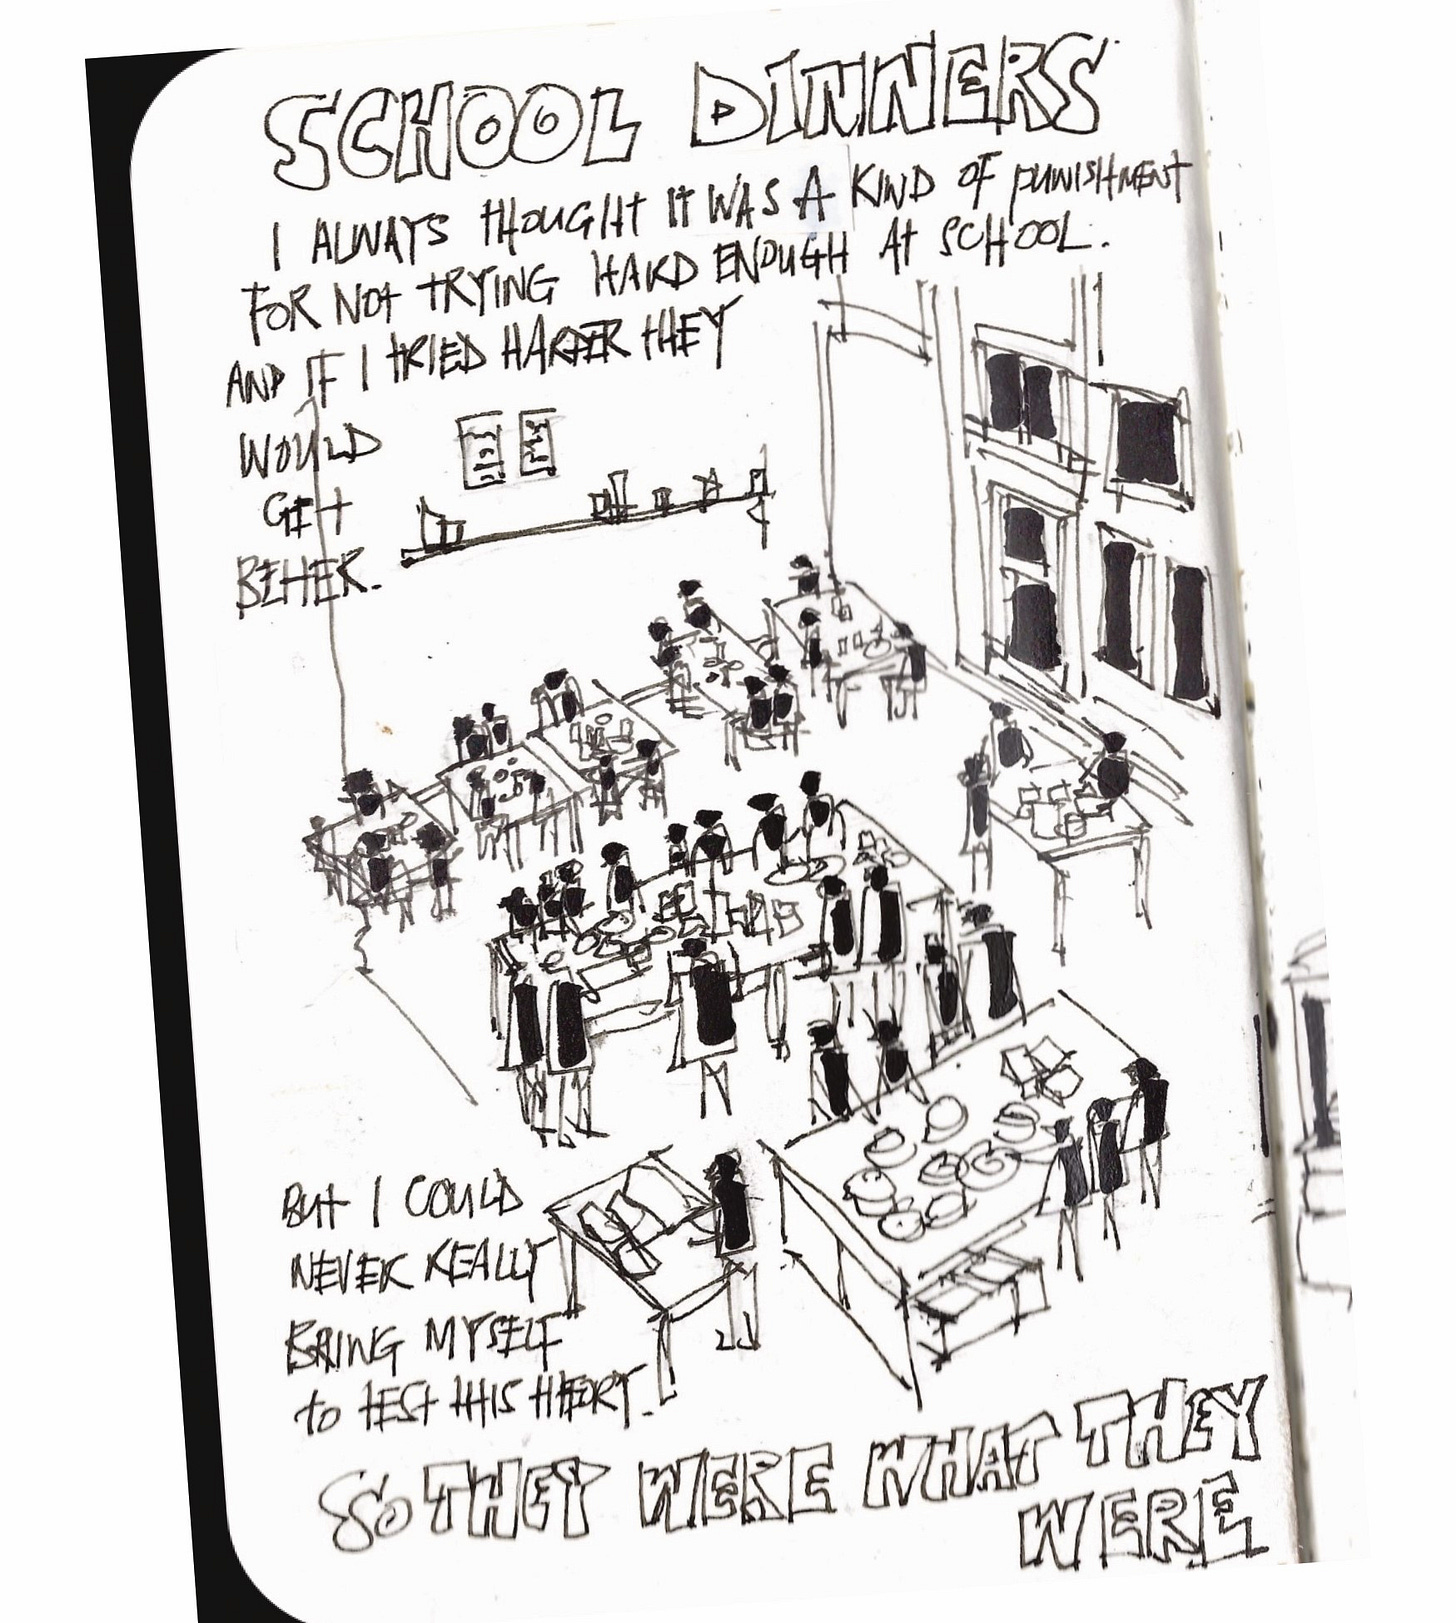 SCHOOL DINNERS
I ALWAYS THOUGHT IT WAS A KIND OF PUNISHMENT
FOR NOT TRYING HARD ENOUGH AT SCHOOL.
AND IF I TRIED HARDER THEY
WOULD
GET
BETTER.
BUT I COULD
NEVER REALLY
BRING MYSELF
TO TEST THIS THEORY.
SO THEY WERE WHAT THEY
WERE